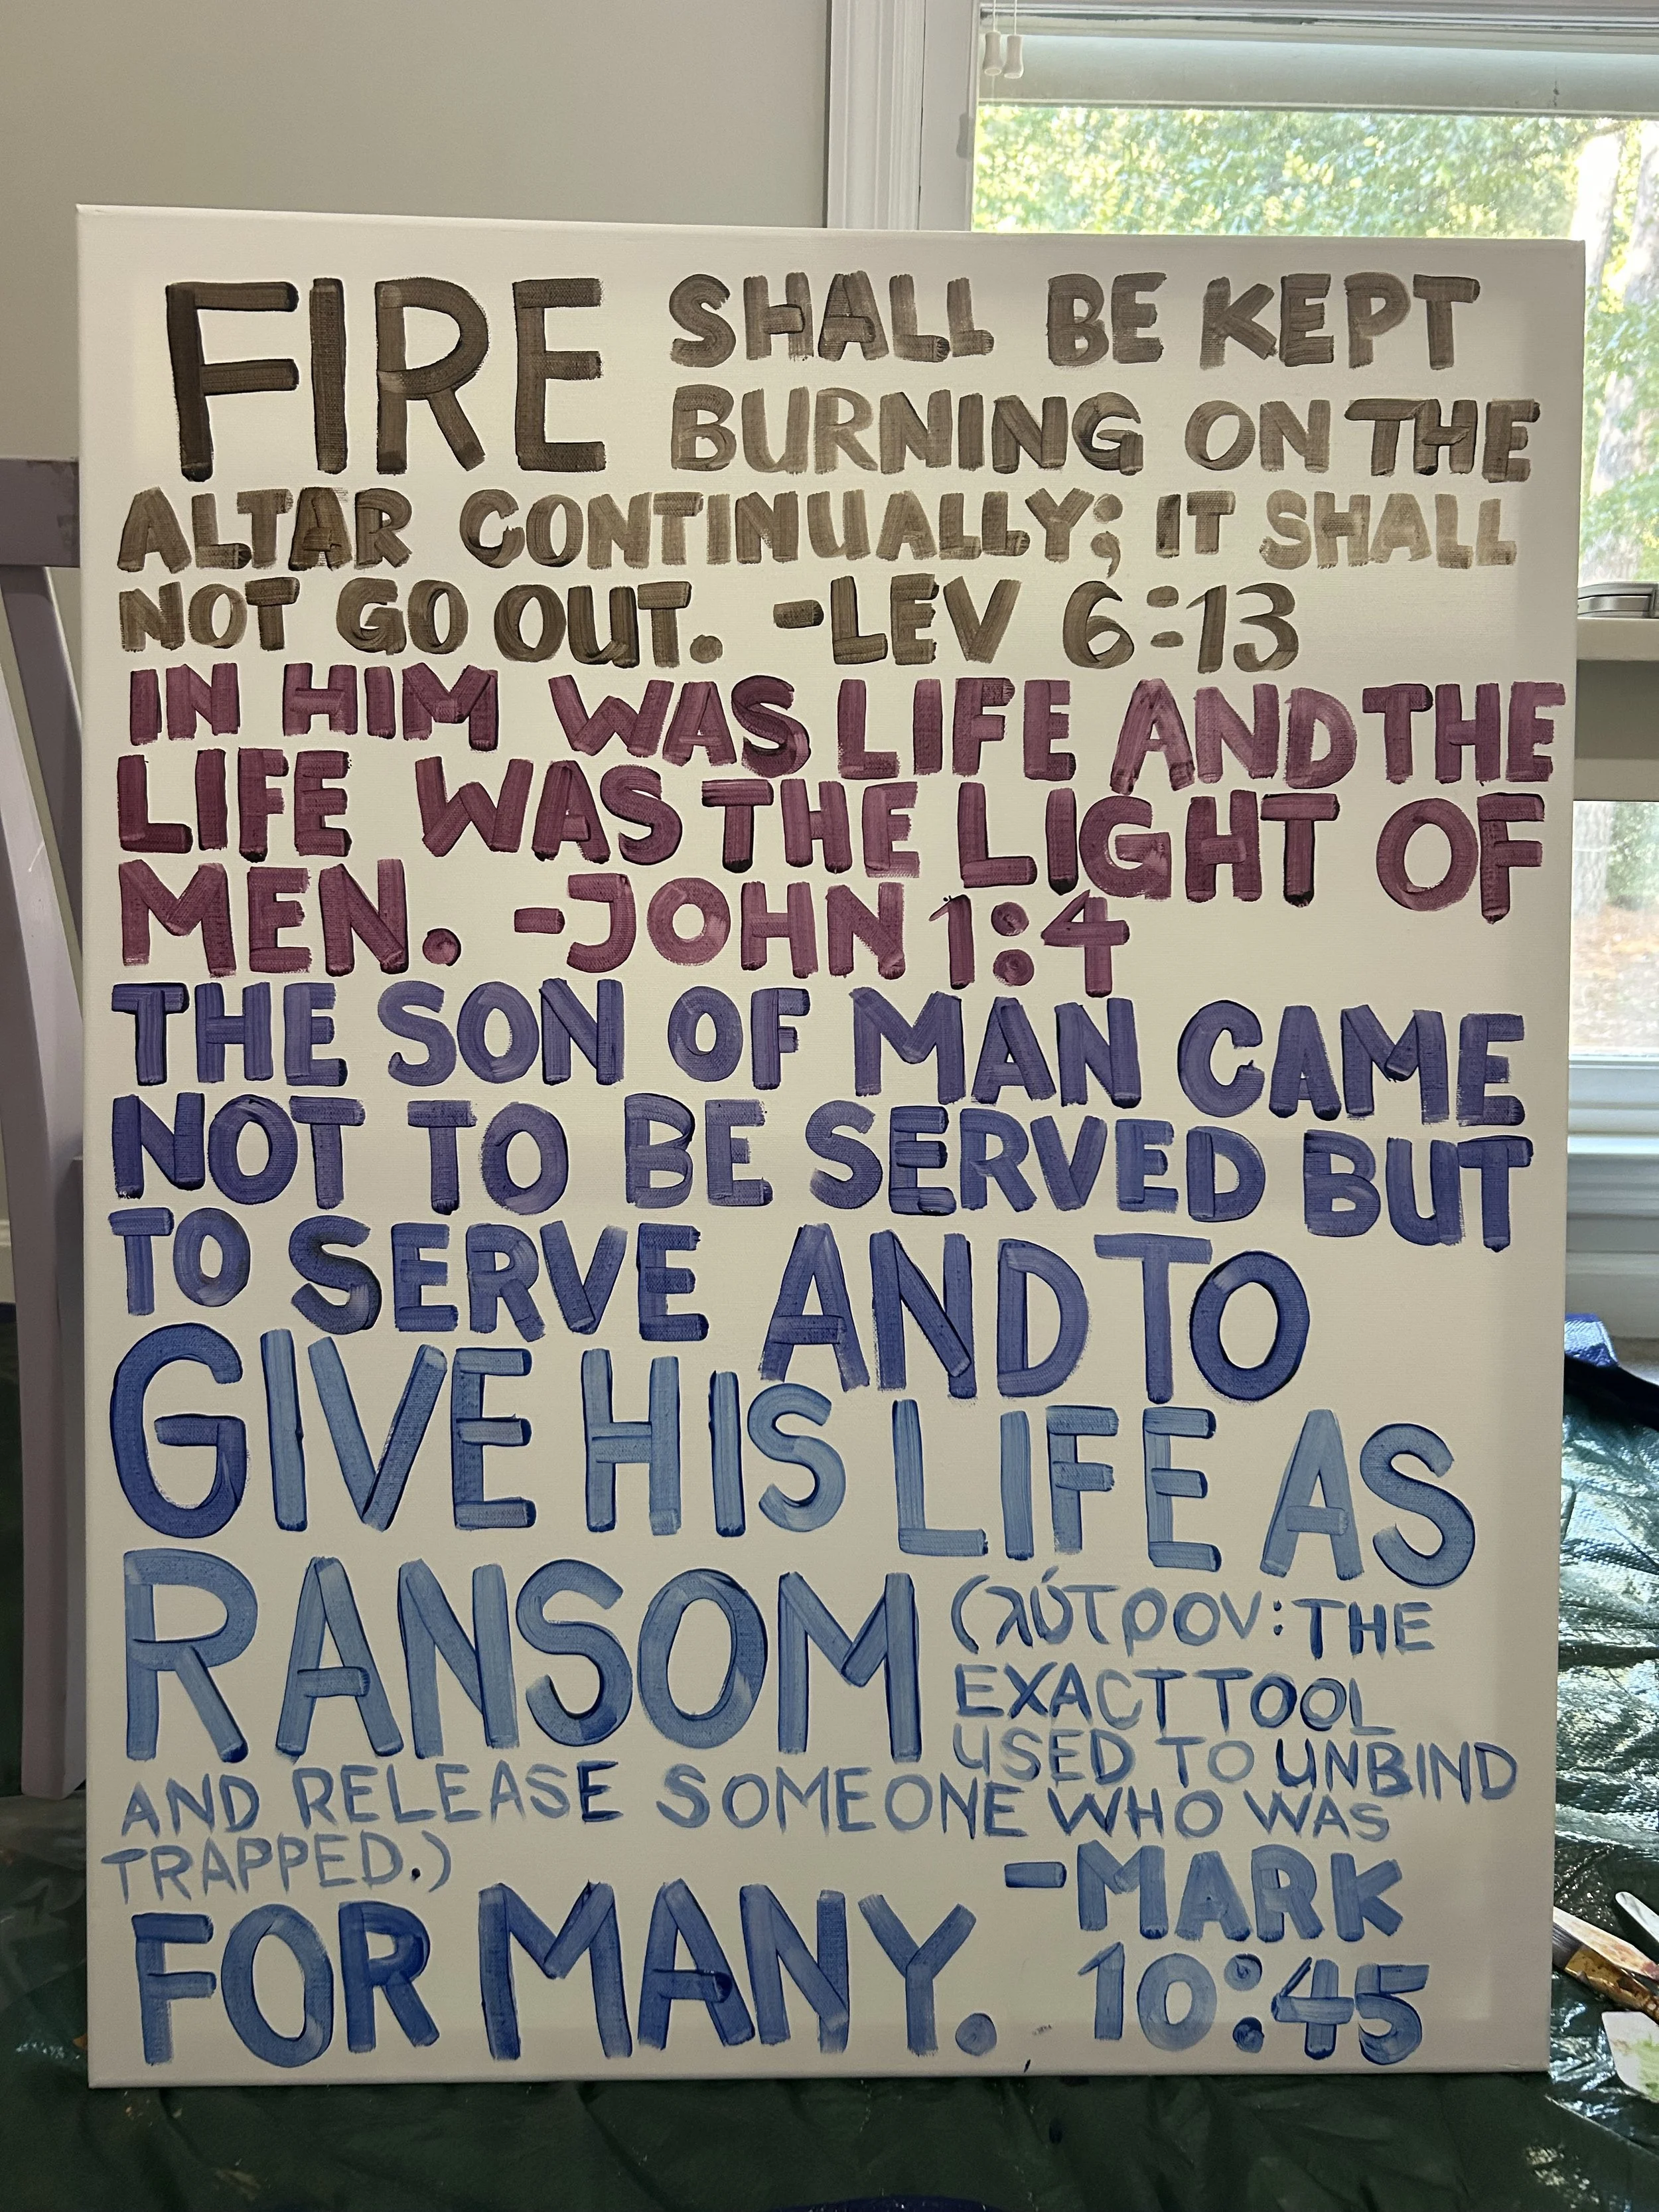 FIRE SHALL BE KEPT
BURNING ON THE
ALTAR CONTINUALLY; IT SHALL
NOT GO OUT. -LEV 6:13
IN HIM WAS LIFE AND THE
LIFE WAS THE LIGHT OF
MEN. -JOHN 1:4
THE SON OF MAN CAME
NOT TO BE SERVED BUT
TO SERVE AND TO
GIVE HIS LIFE AS
RANSOM (λύτρον: THE
EXACT TOOL
USED TO UNBIND
AND RELEASE SOMEONE WHO WAS
TRAPPED.)
FOR MANY. -MARK
10:45